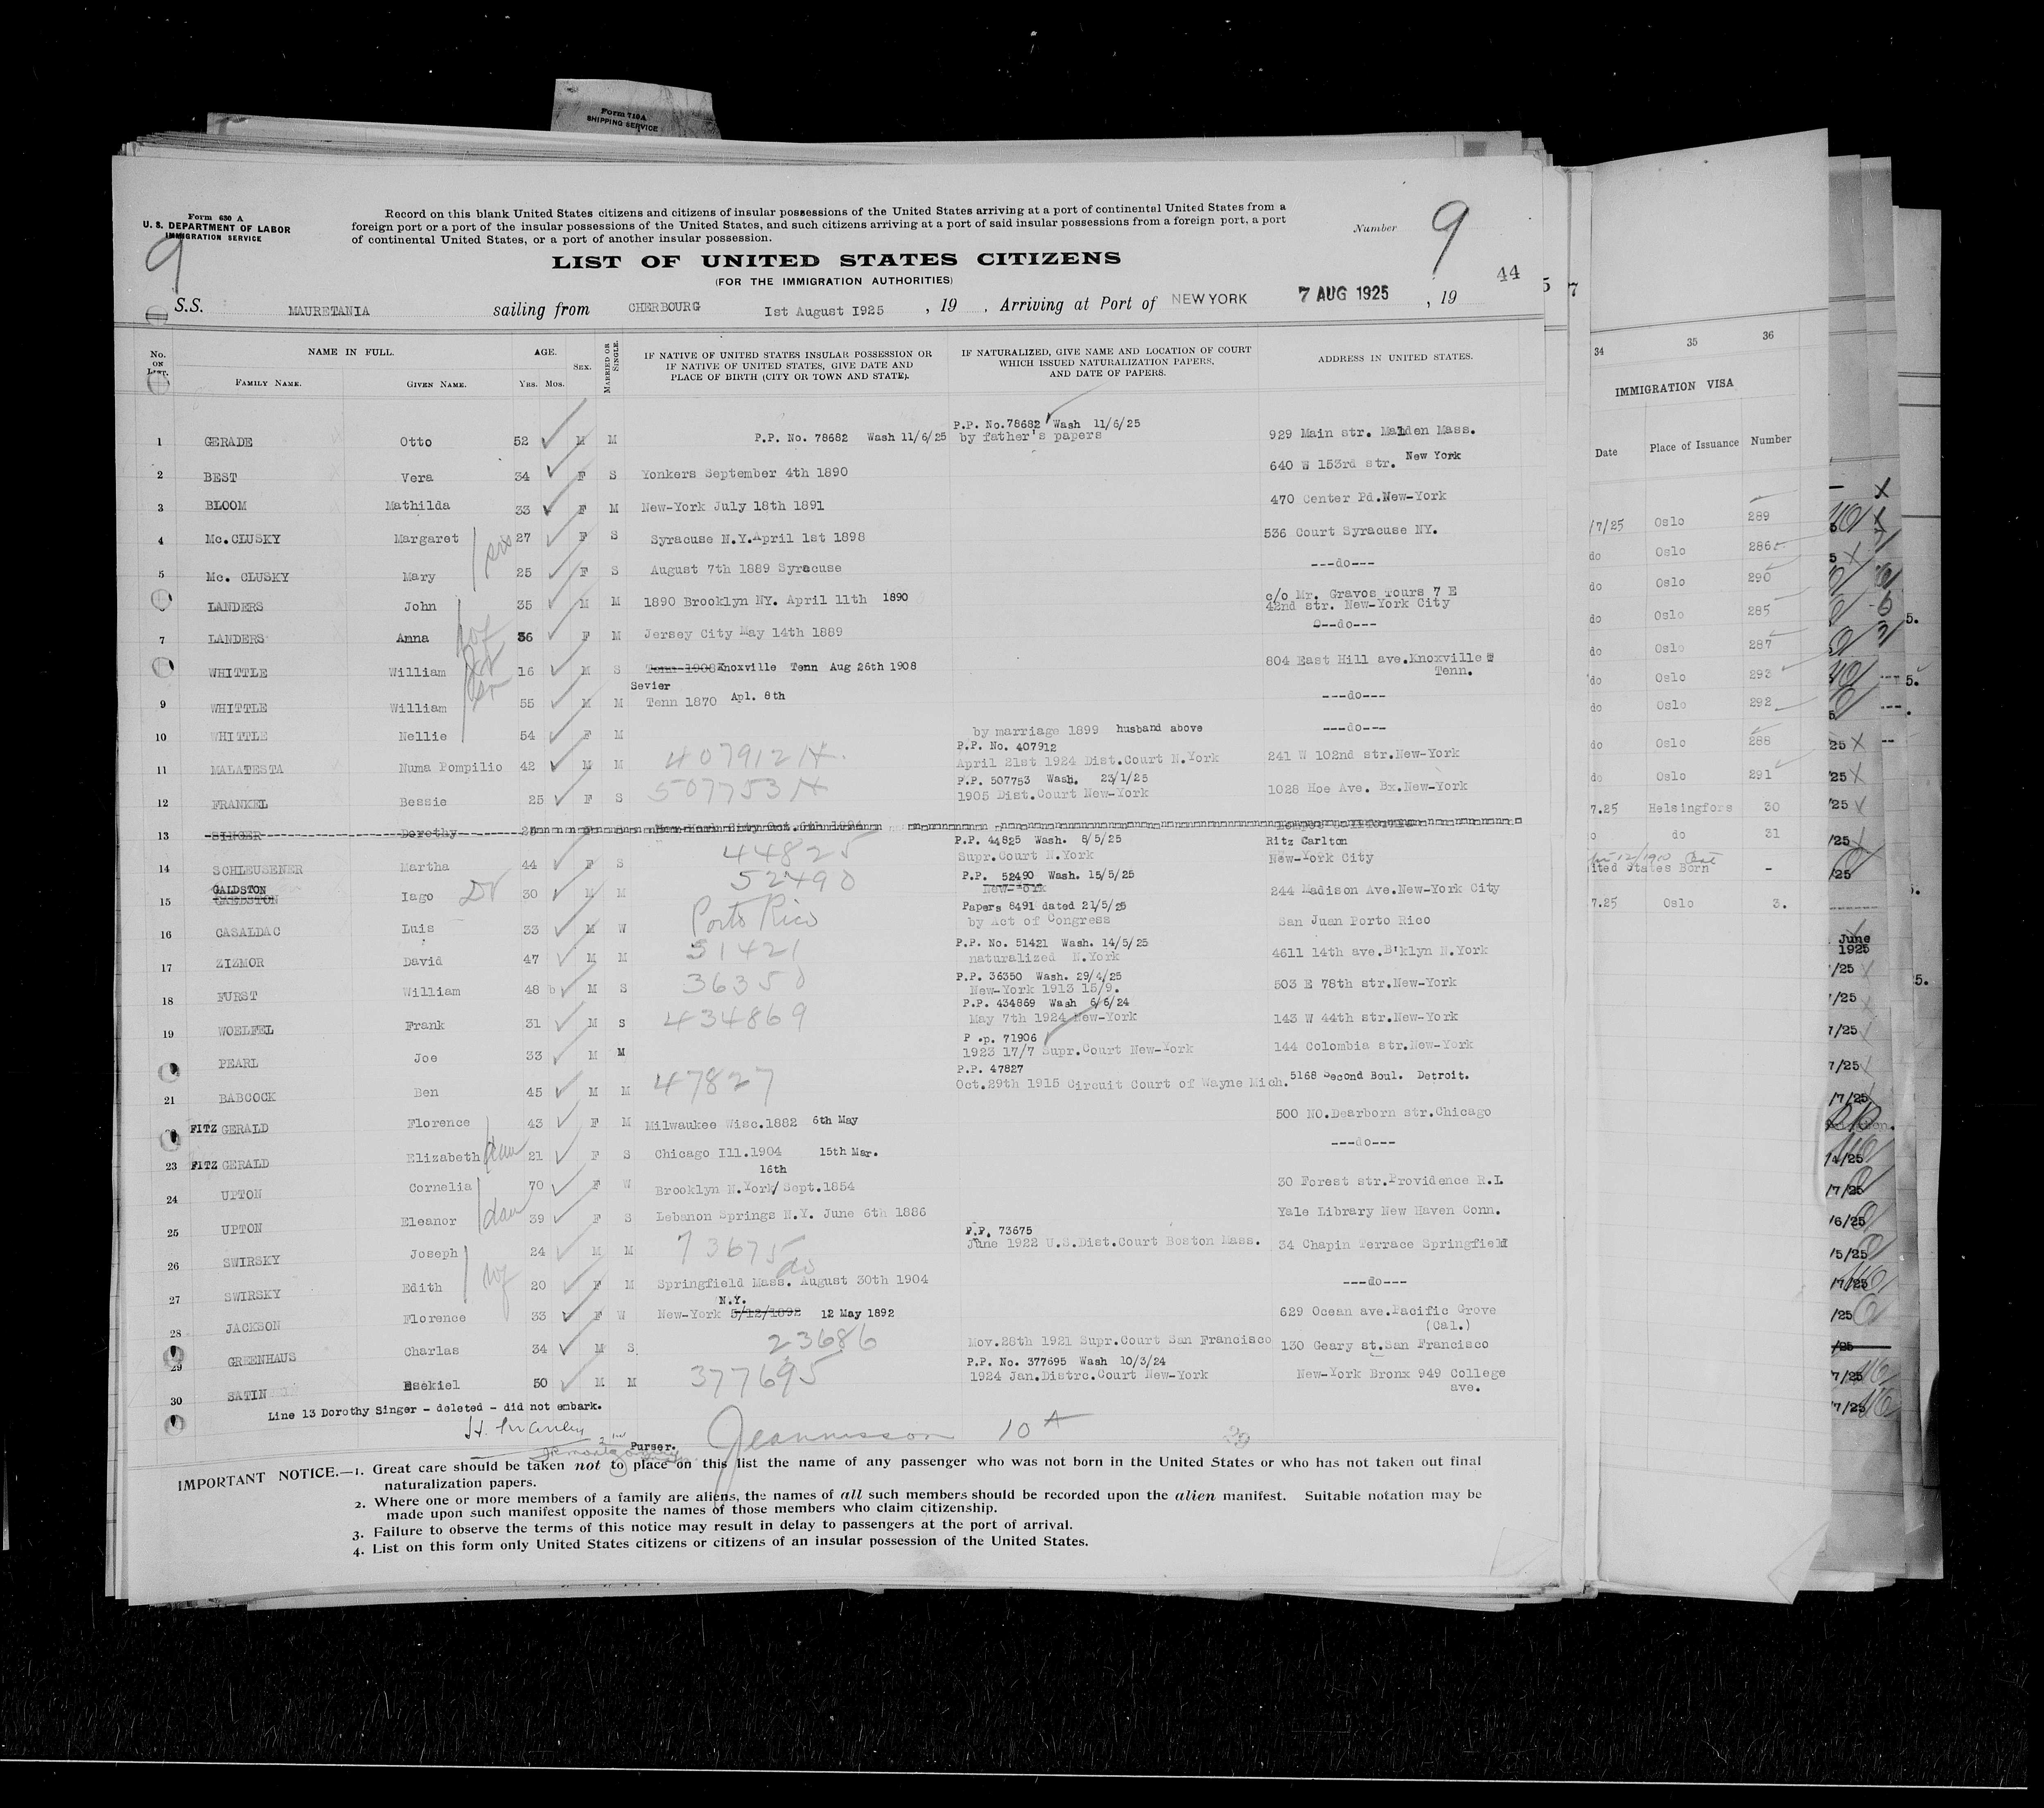 Form 719A
SHIPPING SERVICE
Form 630 A
U. S. DEPARTMENT OF LABOR
IMMIGRATION SERVICE
9
Record on this blank United States citizens and citizens of insular possessions of the United States arriving at a port of continental United States from a
foreign port or a port of the insular possessions of the United States, and such citizens arriving at a port of said insular possessions from a foreign port, a port
of continental United States, or a port of another insular possession.
Number 9
44
LIST OF UNITED STATES CITIZENS
(FOR THE IMMIGRATION AUTHORITIES)
S.S. MAURETANIA sailing from CHERBOURG Ist August I925 , 19 . Arriving at Port of NEW YORK 7 AUG 1925 , 19
No. ON LIST. NAME IN FULL. FAMILY NAME. GIVEN NAME. AGE. YRS. MOS. SEX. MARRIED OR SINGLE.
IF NATIVE OF UNITED STATES INSULAR POSSESSION OR
IF NATIVE OF UNITED STATES, GIVE DATE AND
PLACE OF BIRTH (CITY OR TOWN AND STATE).
IF NATURALIZED, GIVE NAME AND LOCATION OF COURT
WHICH ISSUED NATURALIZATION PAPERS,
AND DATE OF PAPERS.
ADDRESS IN UNITED STATES.
1 GERADE Otto 52 M M P.P. No. 78682 Wash 11/6/25 P.P. No.78682 Wash 11/6/25 by father's papers 929 Main str. Malden Mass.
2 BEST Vera 34 F S Yonkers September 4th 1890 640 W 153rd str. New York
3 BLOOM Mathilda 33 F M New-York July 18th 1891 470 Center Pd.New-York
4 Mc.CLUSKY Margaret sis 27 F S Syracuse N.Y.April 1st 1898 536 Court Syracuse NY.
5 Mc. CLUSKY Mary 25 F S August 7th 1889 Syracuse ---do---
LANDERS John 35 M M 1890 Brooklyn NY. April 11th 1890 c/o Mr. Gravos Tours 7 E 42nd str. New-York City
7 LANDERS Anna wf 36 F M Jersey City May 14th 1889 ---do---
WHITTLE William 16 M S Tenn 1908 Knoxville Tenn Aug 26th 1908 804 East Hill ave.Knoxville Tenn.
9 WHITTLE William 55 M M Sevier Tenn 1870 Apl. 8th ---do---
10 WHITTLE Nellie 54 F M by marriage 1899 husband above ---do---
11 MALATESTA Numa Pompilio 42 M M 407912 N. P.P. No. 407912 April 21st 1924 Dist.Court N.York 241 W 102nd str.New-York
12 FRANKEL Bessie 25 F S 507753 N P.P. 507753 Wash. 23/1/25 1905 Dist.Court New-York 1028 Hoe Ave. Bx.New-York
13 SINGER Dorothy
14 SCHLEUSENER Martha 44 F S 44825 P.P. 44825 Wash. 8/5/25 Supr.Court N.York Ritz Carlton New-York City
15 GALDSTON Iago Dr 30 M M 52490 P.P. 52490 Wash. 15/5/25 New-York 244 Madison Ave.New-York City
16 CASALDAC Luis 33 M W Porto Rico Papers 8491 dated 21/5/25 by Act of Congress San Juan Porto Rico
17 ZIZMOR David 47 M M 51421 P.P. No. 51421 Wash. 14/5/25 naturalized N.York 4611 14th ave.B'klyn N.York
18 FURST William 48 M S 36350 P.P. 36350 Wash. 29/4/25 New-York 1913 15/9. 503 E 78th str.New-York
19 WOELFEL Frank 31 M S 434869 P.P. 434869 Wash 6/6/24 May 7th 1924 New-York 143 W 44th str.New-York
PEARL Joe 33 M M P .p. 71906 1923 17/7 Supr.Court New-York 144 Colombia str.New-York
21 BABCOCK Ben 45 M M 47827 P.P. 47827 Oct.29th 1915 Circuit Court of Wayne Mich. 5168 Second Boul. Detroit.
FITZ GERALD Florence 43 F M Milwaukee Wisc.1882 6th May 500 NO.Dearborn str.Chicago
23 FITZ GERALD Elizabeth dau 21 F S Chicago Ill.1904 15th Mar. ---do---
24 UPTON Cornelia 70 F W Brooklyn N.York/ 16th Sept.1854 30 Forest str.Providence R.I.
25 UPTON Eleanor dau 39 F S Lebanon Springs N.Y. June 6th 1886 Yale Library New Haven Conn.
26 SWIRSKY Joseph 24 M M 73675 P.P. 73675 June 1922 U.S.Dist.Court Boston Mass. 34 Chapin Terrace Springfield
27 SWIRSKY Edith wf 20 F M do Springfield Mass. August 30th 1904 ---do---
28 JACKSON Florence 33 F W New-York N.Y. 5/12/1892 12 May 1892 629 Ocean ave.Pacific Grove (Cal.)
29 GREENHAUS Charlas 34 M S 23686 Nov.28th 1921 Supr.Court San Francisco 130 Geary st.San Francisco
30 SATIN Esekiel 50 M M 377695 P.P. No. 377695 Wash 10/3/24 1924 Jan.Distrc.Court New-York New-York Bronx 949 College ave.
Line 13 Dorothy Singer - deleted - did not embark.
Purser.
10 A
IMPORTANT NOTICE.—1. Great care should be taken not to place on this list the name of any passenger who was not born in the United States or who has not taken out final
naturalization papers.
2. Where one or more members of a family are aliens, the names of all such members should be recorded upon the alien manifest. Suitable notation may be
made upon such manifest opposite the names of those members who claim citizenship.
3. Failure to observe the terms of this notice may result in delay to passengers at the port of arrival.
4. List on this form only United States citizens or citizens of an insular possession of the United States.
34 35 36
IMMIGRATION VISA
Date Place of Issuance Number
/7/25 Oslo 289
do Oslo 286
do Oslo 290
do Oslo 285
do Oslo 287
do Oslo 293
do Oslo 292
do Oslo 288
do Oslo 291
7.25 Helsingfors 30
do 31
ited States Born -
7.25 Oslo 3.
June
1925